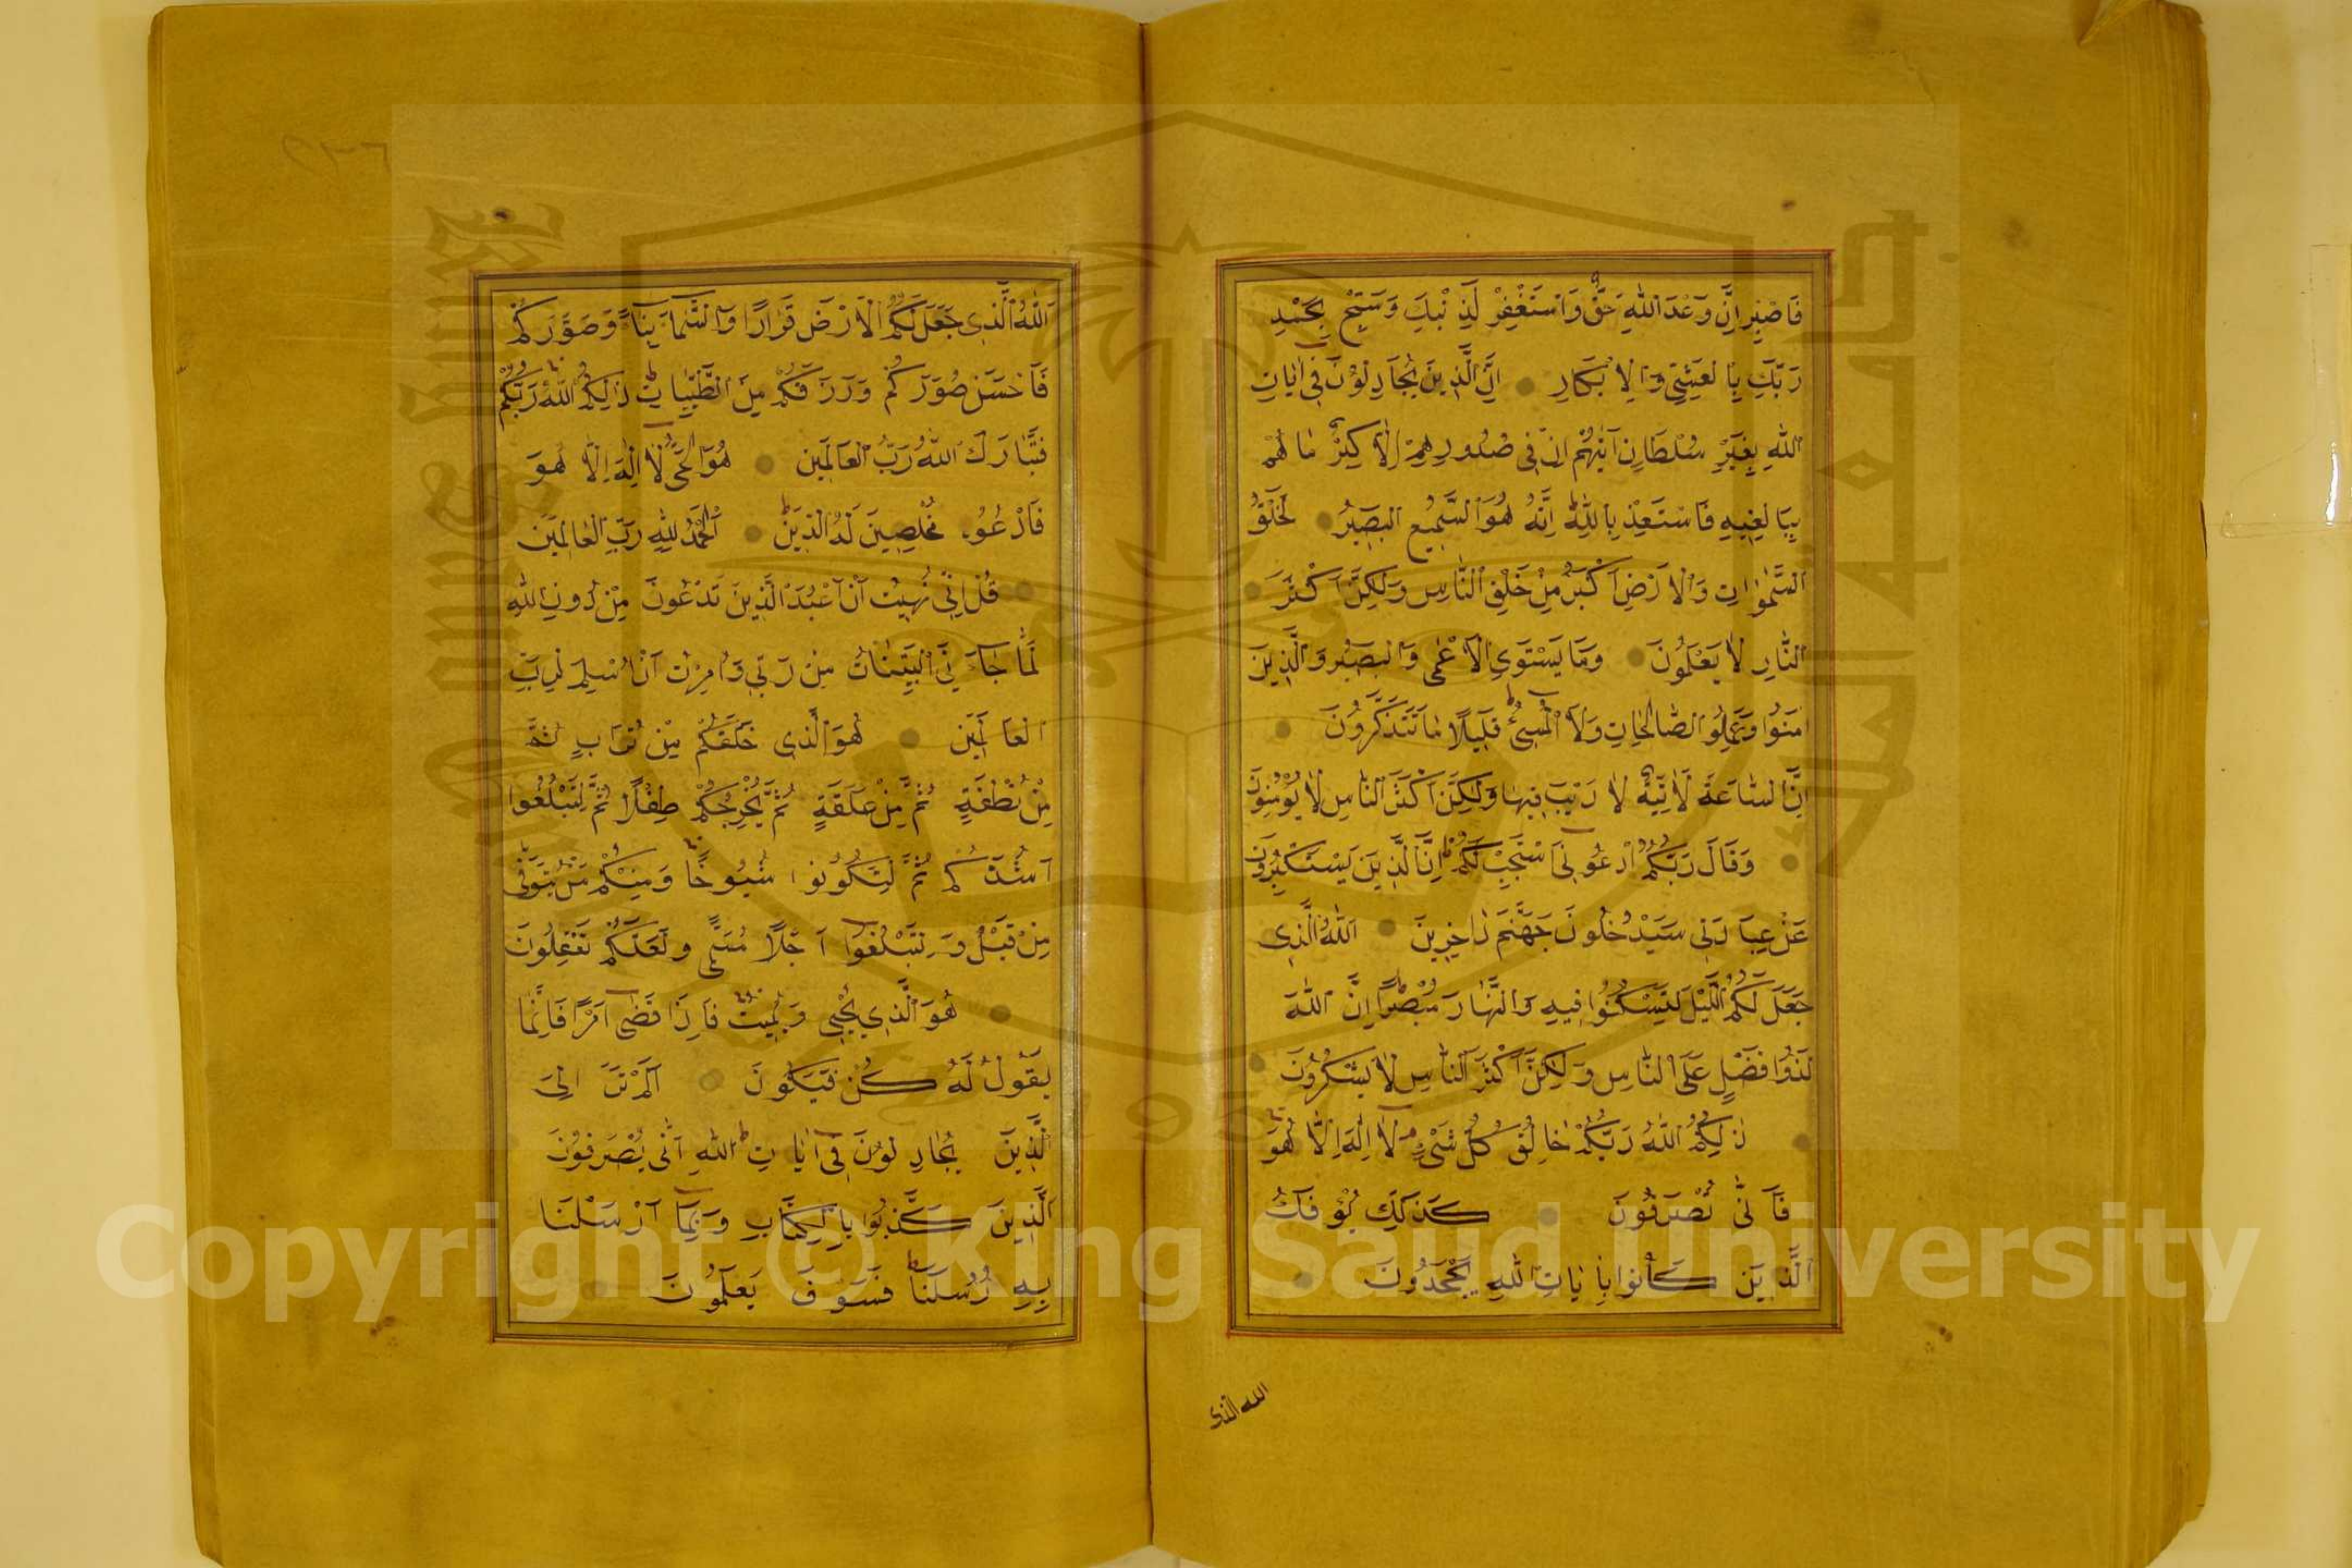 فَاصْبِرْ اِنَّ وَعْدَ اللّٰهِ حَقٌّ وَاسْتَغْفِرْ لِذَنْبِكَ وَسَبِّحْ بِحَمْدِ
رَبِّكَ بِالْعَشِيِّ وَالْاِبْكَارِ اِنَّ الَّذِينَ يُجَادِلُونَ فِى اٰيَاتِ
اللّٰهِ بِغَيْرِ سُلْطَانٍ اَتٰيهُمْ اِنْ فِى صُدُورِهِمْ اِلَّا كِبْرٌ مَا هُمْ
بِبَالِغِيهِ فَاسْتَعِذْ بِاللّٰهِ اِنَّهُ هُوَ السَّمِيعُ الْبَصِيرُ لَخَلْقُ
السَّمٰوَاتِ وَالْاَرْضِ اَكْبَرُ مِنْ خَلْقِ النَّاسِ وَلٰكِنَّ اَكْثَرَ
النَّاسِ لَا يَعْلَمُونَ وَمَا يَسْتَوِى الْاَعْمٰى وَالْبَصِيرُ وَالَّذِينَ
اٰمَنُوا وَعَمِلُوا الصَّالِحَاتِ وَلَا الْمُسِىءُ قَلِيلًا مَا تَتَذَكَّرُونَ
اِنَّ السَّاعَةَ لَاٰتِيَةٌ لَا رَيْبَ فِيهَا وَلٰكِنَّ اَكْثَرَ النَّاسِ لَا يُؤْمِنُونَ
وَقَالَ رَبُّكُمُ ادْعُونِى اَسْتَجِبْ لَكُمْ اِنَّ الَّذِينَ يَسْتَكْبِرُونَ
عَنْ عِبَادَتِى سَيَدْخُلُونَ جَهَنَّمَ دَاخِرِينَ اَللّٰهُ الَّذِى
جَعَلَ لَكُمُ الَّيْلَ لِتَسْكُنُوا فِيهِ وَالنَّهَارَ مُبْصِرًا اِنَّ اللّٰهَ
لَذُوا فَضْلٍ عَلَى النَّاسِ وَلٰكِنَّ اَكْثَرَ النَّاسِ لَا يَشْكُرُونَ
ذٰلِكُمُ اللّٰهُ رَبُّكُمْ خَالِقُ كُلِّ شَىْءٍ لَا اِلٰهَ اِلَّا هُوَ
فَاَنّٰى تُصْرَفُونَ كَذٰلِكَ يُؤْفَكُ
الَّذِينَ كَانُوا بِاٰيَاتِ اللّٰهِ يَجْحَدُونَ
الله الذى
اَللّٰهُ الَّذِى جَعَلَ لَكُمُ الْاَرْضَ قَرَارًا وَالسَّمَاءَ بِنَاءً وَصَوَّرَكُمْ
فَاَحْسَنَ صُوَرَكُمْ وَرَزَقَكُمْ مِنَ الطَّيِّبَاتِ ذٰلِكُمُ اللّٰهُ رَبُّكُمْ
فَتَبَارَكَ اللّٰهُ رَبُّ الْعَالَمِينَ هُوَ الْحَىُّ لَا اِلٰهَ اِلَّا هُوَ
فَادْعُوهُ مُخْلِصِينَ لَهُ الدِّينَ اَلْحَمْدُ لِلّٰهِ رَبِّ الْعَالَمِينَ
قُلْ اِنِّى نُهِيتُ اَنْ اَعْبُدَ الَّذِينَ تَدْعُونَ مِنْ دُونِ اللّٰهِ
لَمَّا جَاءَنِىَ الْبَيِّنَاتُ مِنْ رَبِّى وَاُمِرْتُ اَنْ اُسْلِمَ لِرَبِّ
الْعَالَمِينَ هُوَ الَّذِى خَلَقَكُمْ مِنْ تُرَابٍ ثُمَّ
مِنْ نُطْفَةٍ ثُمَّ مِنْ عَلَقَةٍ ثُمَّ يُخْرِجُكُمْ طِفْلًا ثُمَّ لِتَبْلُغُوا
اَشُدَّكُمْ ثُمَّ لِتَكُونُوا شُيُوخًا وَمِنْكُمْ مَنْ يُتَوَفّٰى
مِنْ قَبْلُ وَلِتَبْلُغُوا اَجَلًا مُسَمًّى وَلَعَلَّكُمْ تَعْقِلُونَ
هُوَ الَّذِى يُحْيِى وَيُمِيتُ فَاِذَا قَضٰى اَمْرًا فَاِنَّمَا
يَقُولُ لَهُ كُنْ فَيَكُونُ اَلَمْ تَرَ اِلَى
الَّذِينَ يُجَادِلُونَ فِى اٰيَاتِ اللّٰهِ اَنّٰى يُصْرَفُونَ
اَلَّذِينَ كَذَّبُوا بِالْكِتَابِ وَبِمَا اَرْسَلْنَا
بِهِ رُسُلَنَا فَسَوْفَ يَعْلَمُونَ
Copyright © King Saud University
1957